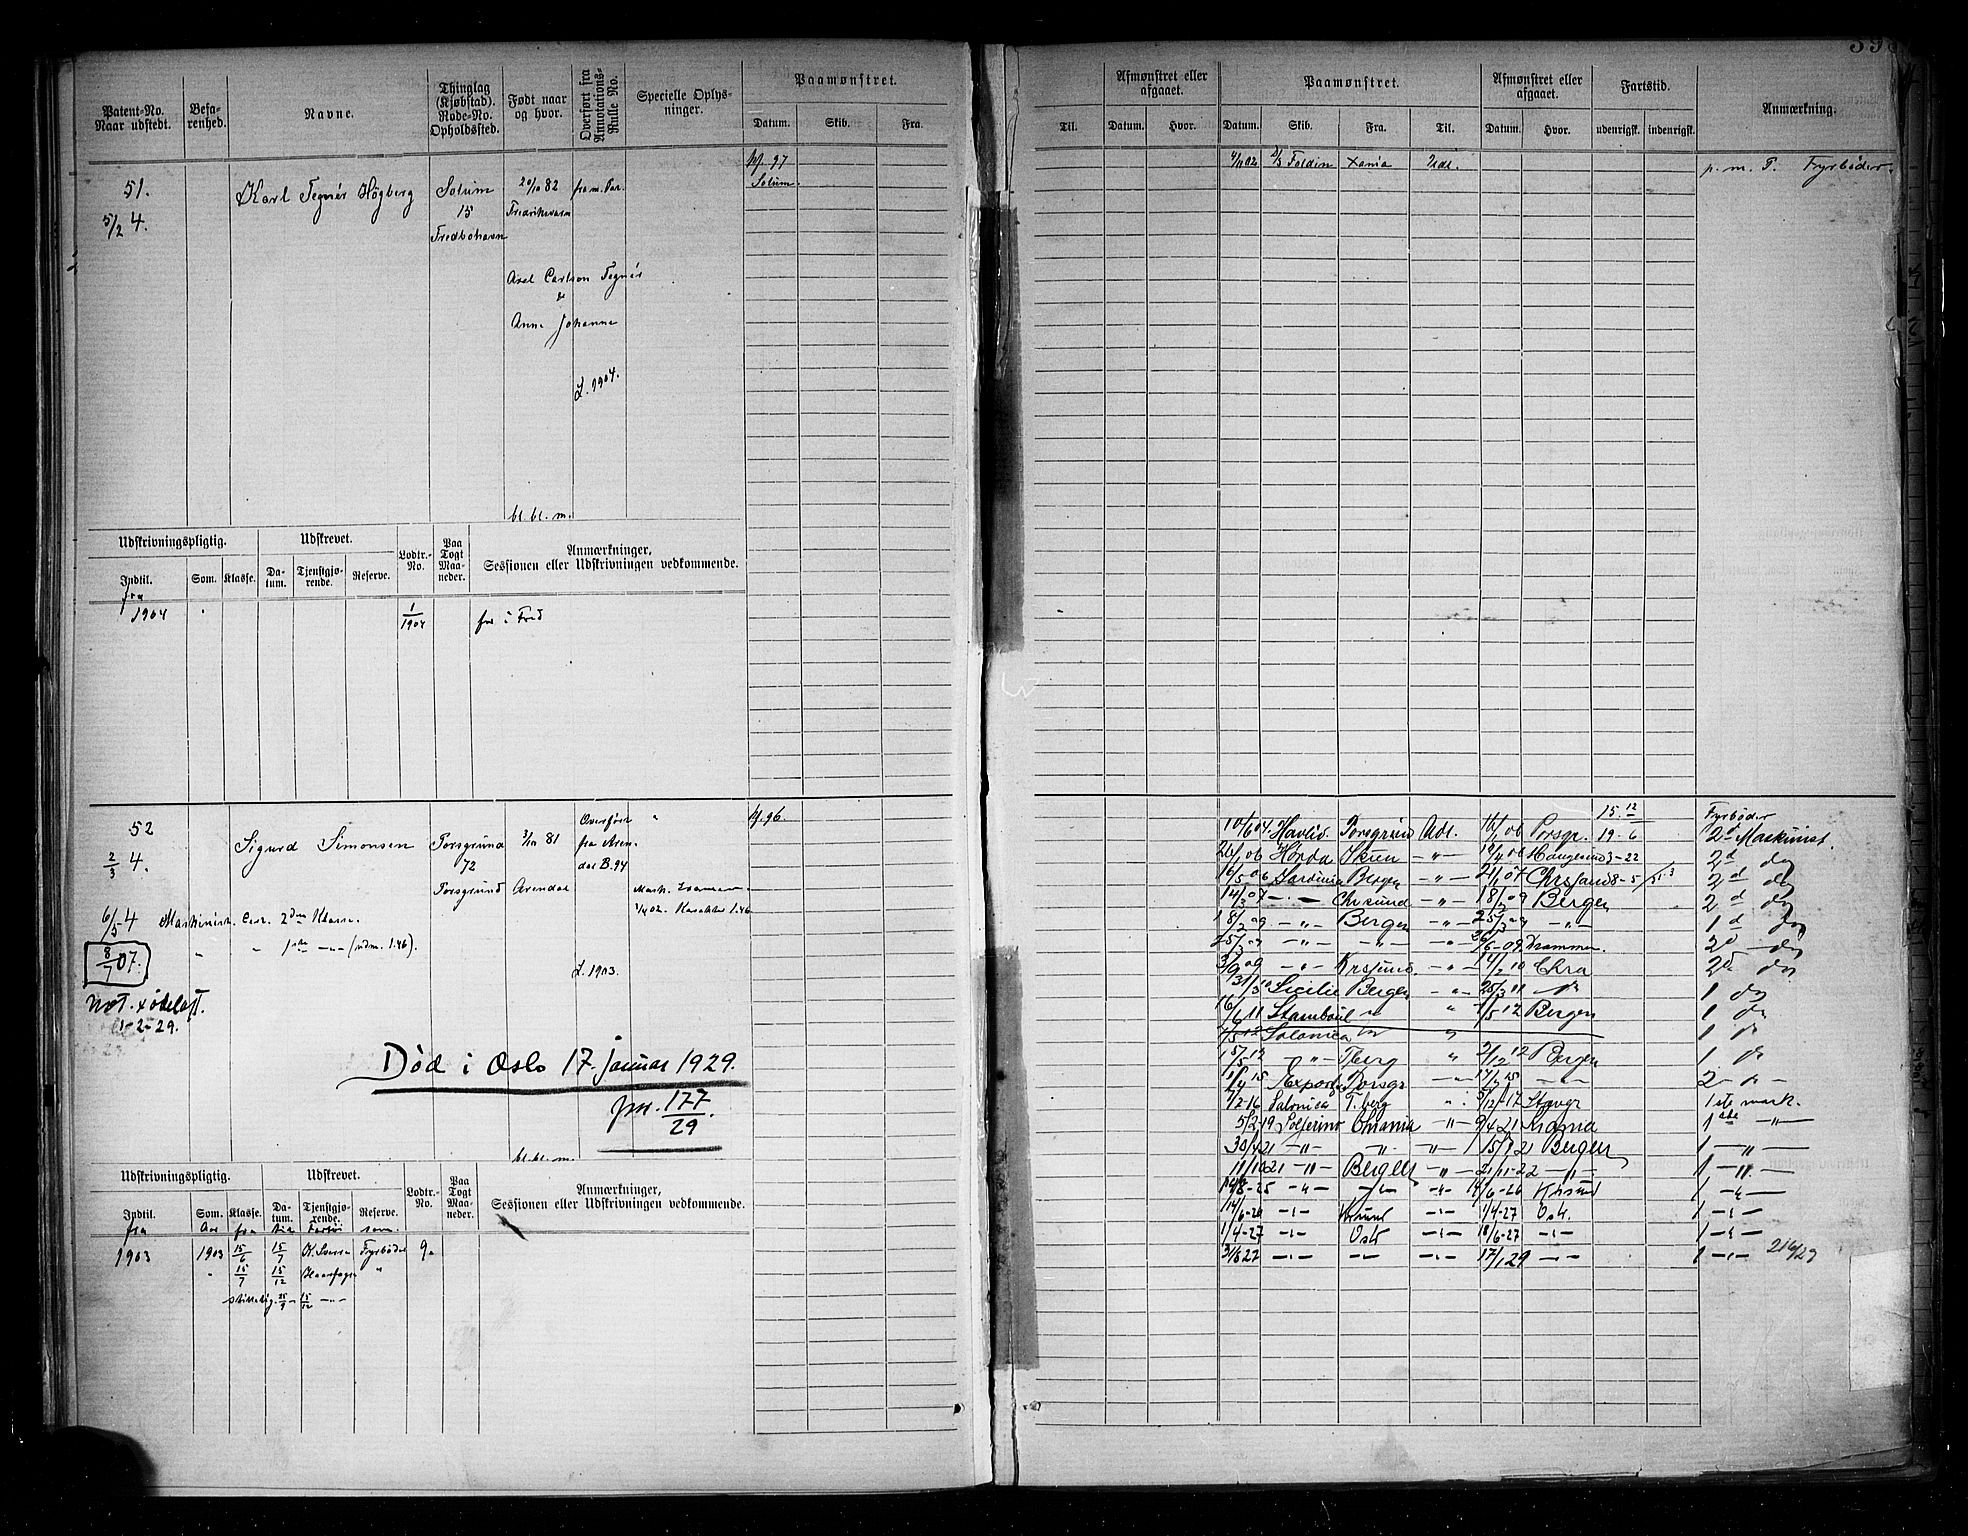 Patent-No. Naar udstedt.
Befa-renhed.
Navne.
Thinglag (Kjøbstad). Rode-No. Opholdssted.
Født naar og hvor.
Overført fra Annotations-Rulle No.
Specielle Oplys-ninger.
Paamønstret.
Datum. Skib. Fra.
51. Karl Tegnér Högberg Solum 20/10 82 fra m. Par. M. 97
5/2 4. 15 Fredriksværn Solum.
Fredbohavn
Axel Carlson Tegnér
&
Anne Johanne
L. 1904.
bl. bl. m.
Udskrivningspligtig. Udskrevet. Lodtr.-No. Paa Togt Maa-neder. Anmærkninger, Sessionen eller Udskrivningen vedkommende.
Indtil. Som. Klasse. Da-tum. Tjenstgjø-rende. Reserve.
fra
1904 1/1904 frs i Fred
52 Sigurd Simonsen Porsgrund 3/10 81 Overført " M. 96.
2/3 4. 72 fra Aren-
dal B. 94
Porsgrund Arendal Mask. Examen
6/5 4 Maskinist. Cert. 2den Klasse. 4/4 02. Karakter 1.46
" " 1ste —"— (udm. 1.46).
8/7 07. L. 1903.
Not. + ødelagt.
1-2-29.
Død i Oslo 17. januar 1929.
jnr. 177/29.
bl. bl. m.
Udskrivningspligtig. Udskrevet. Lodtr.-No. Paa Togt Maa-neder. Anmærkninger, Sessionen eller Udskrivningen vedkommende.
Indtil. Som. Klasse. Da-tum. Tjenstgjø-rende. Reserve.
fra Aar fra til Fartøi som.
1903 1903 15/6 15/7 Fyrbøder 9
" 15/7 15/12 Haarfager "
15/12 —"—
Til.
Afmønstret eller afgaaet. Datum. Hvor.
Paamønstret. Datum. Skib. Fra. Til.
Afmønstret eller afgaaet. Datum. Hvor.
Fartstid. udenrigsk. indenrigsk.
Anmærkning.
4/11 02 D/S Foldin Xania Udl. p. m. T. Fyrbøder.
15 12 Fyrbøder
10/6 04 Havliv Porsgrund Udl. 16/1 06 Porsgr. 19-6 2d Maskinist.
26/1 06 Hørda Skien —"— 19/4 06 Haugesund 3-22 2d do
16/5 06 Sardinia Bergen —"— 21/1 07 Chrsund 8-5 2d do
14/3 07 — " — Chrsund —"— 18/2 09 Bergen 2d do
18/2 09 —"— Bergen —"— 25/3 09 —"— 1d do
25/3 09 —"— —"— —"— 26/6-09 Drammen. 2d do
3/9 09 —"— Krsund. —"— 14/2 10 Chra 2d do
31/3 10 Sicilie Bergen " 25/3 11 do 1 do
16/6 11 Stamboul " " 1/5 12 Bergen 1 do
1/5 12 Salonica " " 1 do
15/5 12 —"— Tberg " 2/12 12 Bergen 1 do
1/4 15 Export Porsgr —"— 17/7 15 —"— 2 - do -
7/2-16 Salonica T.berg " 3/12-17 Stavgr 1ste mask.
5/2 19 Solferino Chrania —"— 9/4 21 Krania 1ste —"—
30/4 21 —"— —"— —"— 15/7 21 Bergen 1 —"—
11/10 21 —"— Bergen —"— 21/11-22 —"— 1 —"—
14/8-25 —"— —"— —"— 14/6-26 Krsund 1 —"—
14/6-26 —"— Krsund —"— 1/4-27 Osl. 1 —"—
1/4-27 —"— Oslo —"— 18/6-27 —"— 1 —"—
31/8 27 —"— —"— —"— 17/1 29 —"— 1 —"— 216/29